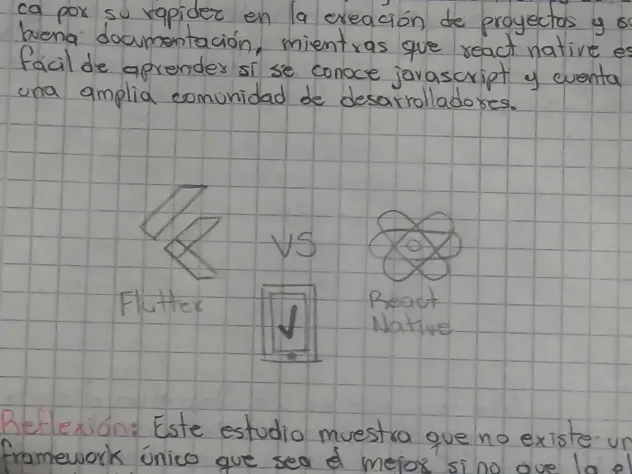 ca por su rapidez en la creación de proyectos y su
buena documentación, mientras que react native es
fácil de aprender si se conoce javascript y cuenta
una amplia comunidad de desarrolladores.
VS
Flutter
React
Native
Reflexión: Este estudio muestra que no existe un
framework único que sea el mejor sino que la el